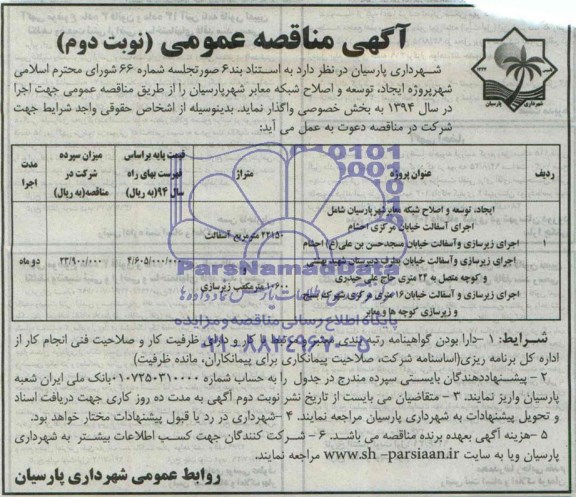 آگهی مناقصه عمومی (نوبت دوم)
شهرداری پارسیان
شهرداری پارسیان در نظر دارد به استناد بند۶ صورتجلسه شماره ۶۶ شورای محترم اسلامی
شهرپروژه ایجاد، توسعه و اصلاح شبکه معابر شهرپارسیان را از طریق مناقصه عمومی جهت اجرا
در سال ۱۳۹۴ به بخش خصوصی واگذار نماید. بدینوسیله از اشخاص حقوقی واجد شرایط جهت
شرکت در مناقصه دعوت به عمل می آید:
ردیف
عنوان پروژه
متراژ
قیمت پایه براساس
فهرست بهای راه
سال ۹۴(به ریال)
میزان سپرده
شرکت در
مناقصه(به ریال)
مدت
اجرا
۱
ایجاد، توسعه و اصلاح شبکه معابرشهرپارسیان شامل
اجرای آسفالت خیابان مرکزی احشام
اجرای زیرسازی وآسفالت خیابان مسجدحسن بن علی(ع) احشام
اجرای زیرسازی وآسفالت خیابان بطرف دبیرستان شهید بهشتی
و کوچه متصل به ۲۴ متری حاج علی حیدری
اجرای زیرسازی و آسفالت خیابان۱۶ متری مرکزی شهرک بسیج
و زیرسازی کوچه ها و معابر
۲۲۱۵۰ مترمربع آسفالت
و
۱۰۶۰۰ مترمکعب زیرسازی
۴/۶۰۵/۰۰۰/۰۰۰
۲۳/۹۰۰/۰۰۰
دو ماه
ParsNamadData
پایگاه اطلاع رسانی مناقصه و مزایده
۰۲۱-۸۸۳۴۹۶۷۰-۵
شرایط: ۱-دارا بودن گواهینامه رتبه بندی معتبر مرتبط با کار و دارای ظرفیت کار و صلاحیت فنی انجام کار از
اداره کل برنامه ریزی(اساسنامه شرکت، صلاحیت پیمانکاری برای پیمانکاران، مانده ظرفیت)
۲ – پیشنهاددهندگان بایستی سپرده مندرج در جدول را به حساب شماره ۰۱۰۷۲۵۰۳۱۰۰۰۰بانک ملی ایران شعبه
پارسیان واریز نمایند. ۳ – متقاضیان می بایست از تاریخ نشر نوبت دوم آگهی به مدت ده روز کاری جهت دریافت اسناد
و تحویل پیشنهادات به شهرداری پارسیان مراجعه نمایند. ۴ –شهرداری در رد یا قبول پیشنهادات مختار خواهد بود.
۵ –هزینه آگهی بعهده برنده مناقصه می باشد. ۶ – شرکت کنندگان جهت کسب اطلاعات بیشتر به شهرداری
پارسیان ویا به سایت www.sh -parsiaan.ir مراجعه نمایند.
روابط عمومی شهرداری پارسیان